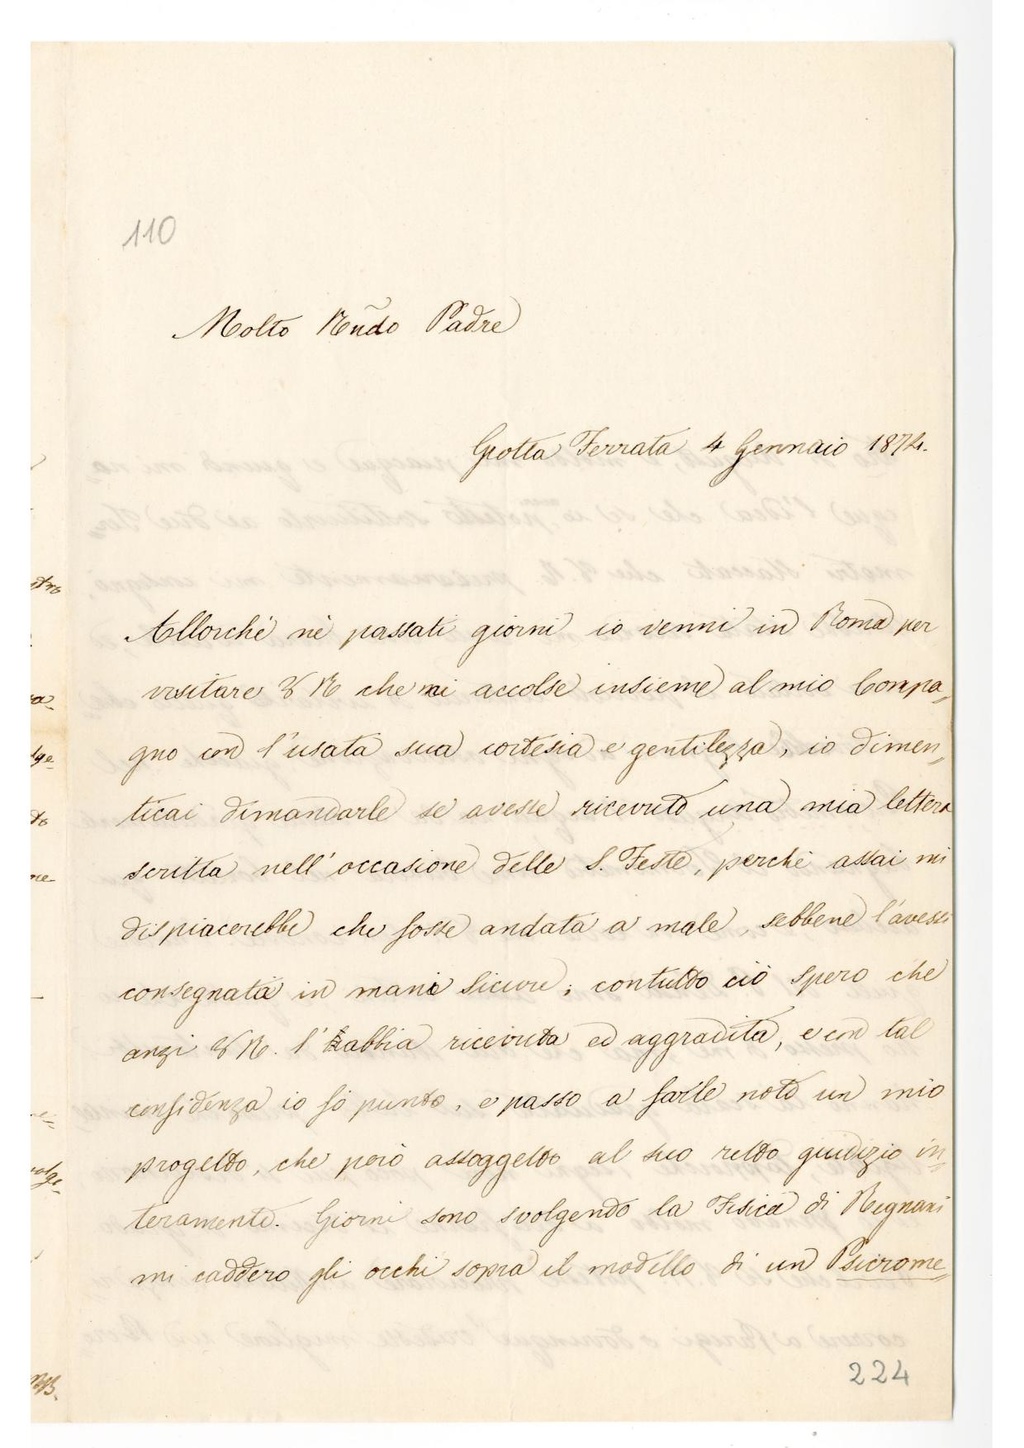 110
Molto Rñdo Padre
Grotta Ferrata 4 Gennaio 1874.
Allorchè nè passati giorni io venni in Roma per
visitare V R che mi accolse insieme al mio Compa„
gno con l'usata sua cortesia e gentilezza, io dimen„
ticai dimandarle se avesse ricevuto una mia lettera
scritta nell'occasione delle S. Feste, perchè assai mi
dispiacerebbe che fosse andata a male, sebbene l'avessi
consegnata in mani sicure; contutto ciò spero che
anzi V R. l'abbia ricevuta ed aggradita, e con tal
confidenza io fò punto, e passo a farle noto un mio
progetto, che però assoggetto al suo retto giudizio in„
teramente. Giorni sono svolgendo la Fisica di Regnani
mi caddero gli occhi sopra il modello di un Psicrome„
224